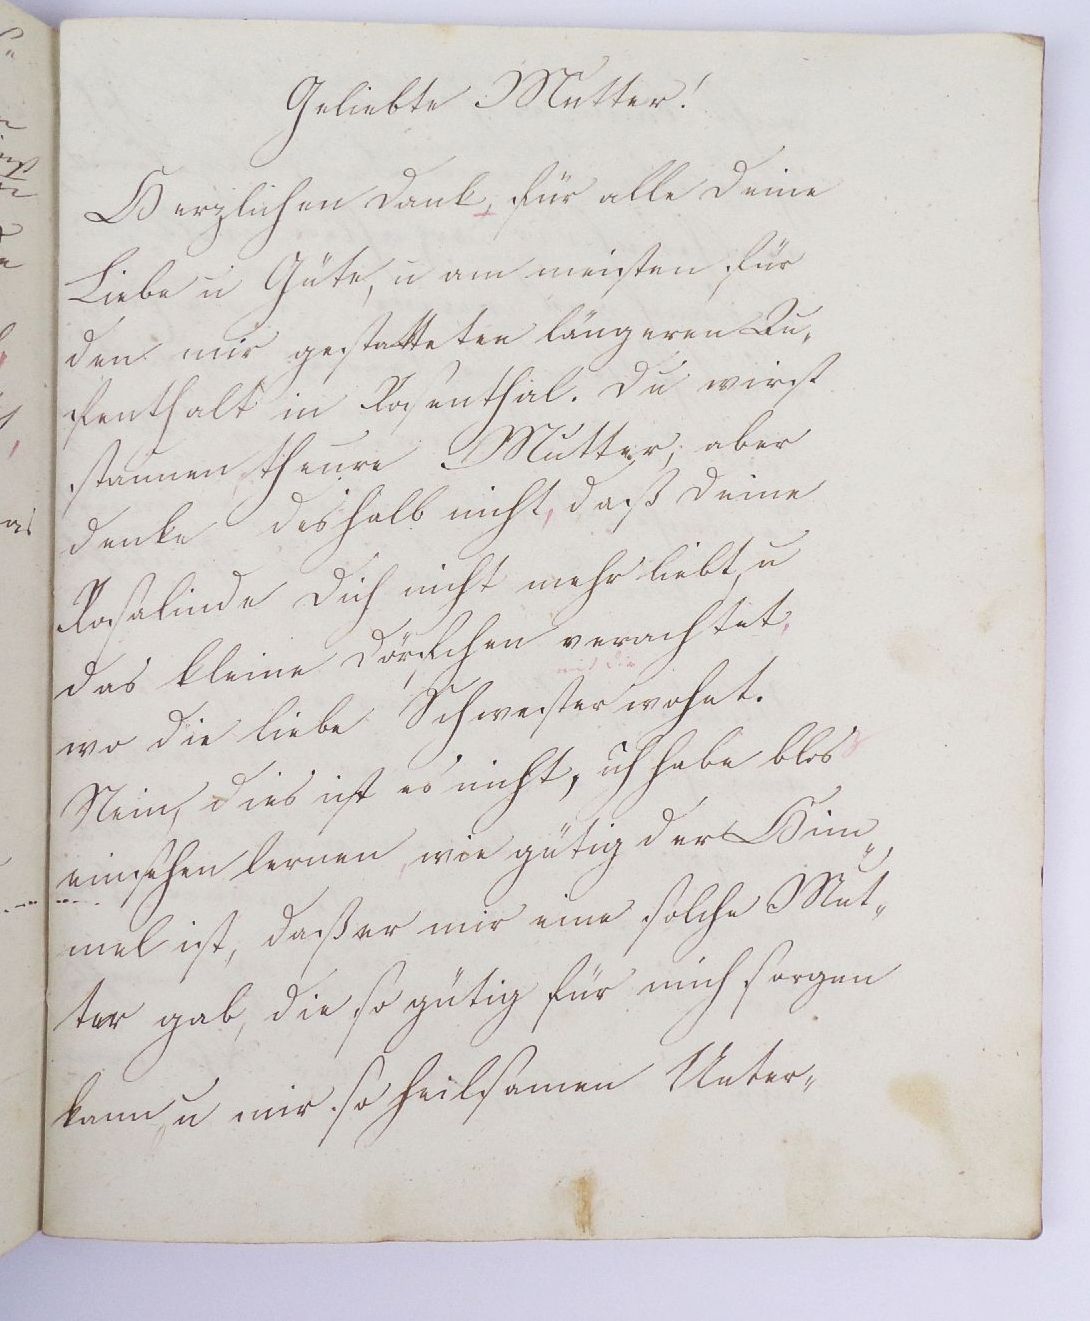 Geliebte Mutter!
Herzlichen Dank, für alle Deine
Liebe u Güte, u am meisten für
den mir gestatteten längeren Au-
fenthalt in Rosenthal. Du wirst
staunen, theure Mutter, aber
denke deshalb nicht, daß Deine
Rosalinde Dich nicht mehr liebt, u
das kleine Dörfchen verachtet,
wo die liebe Schwester wohnt.
Nein, dies ist es nicht, ich habe blos
einsehen lernen, wie gütig der Him-
mel ist, daß er mir eine solche Mut-
ter gab, die so gütig für mich sorgen
kann, u mir so heilsamen Unter-